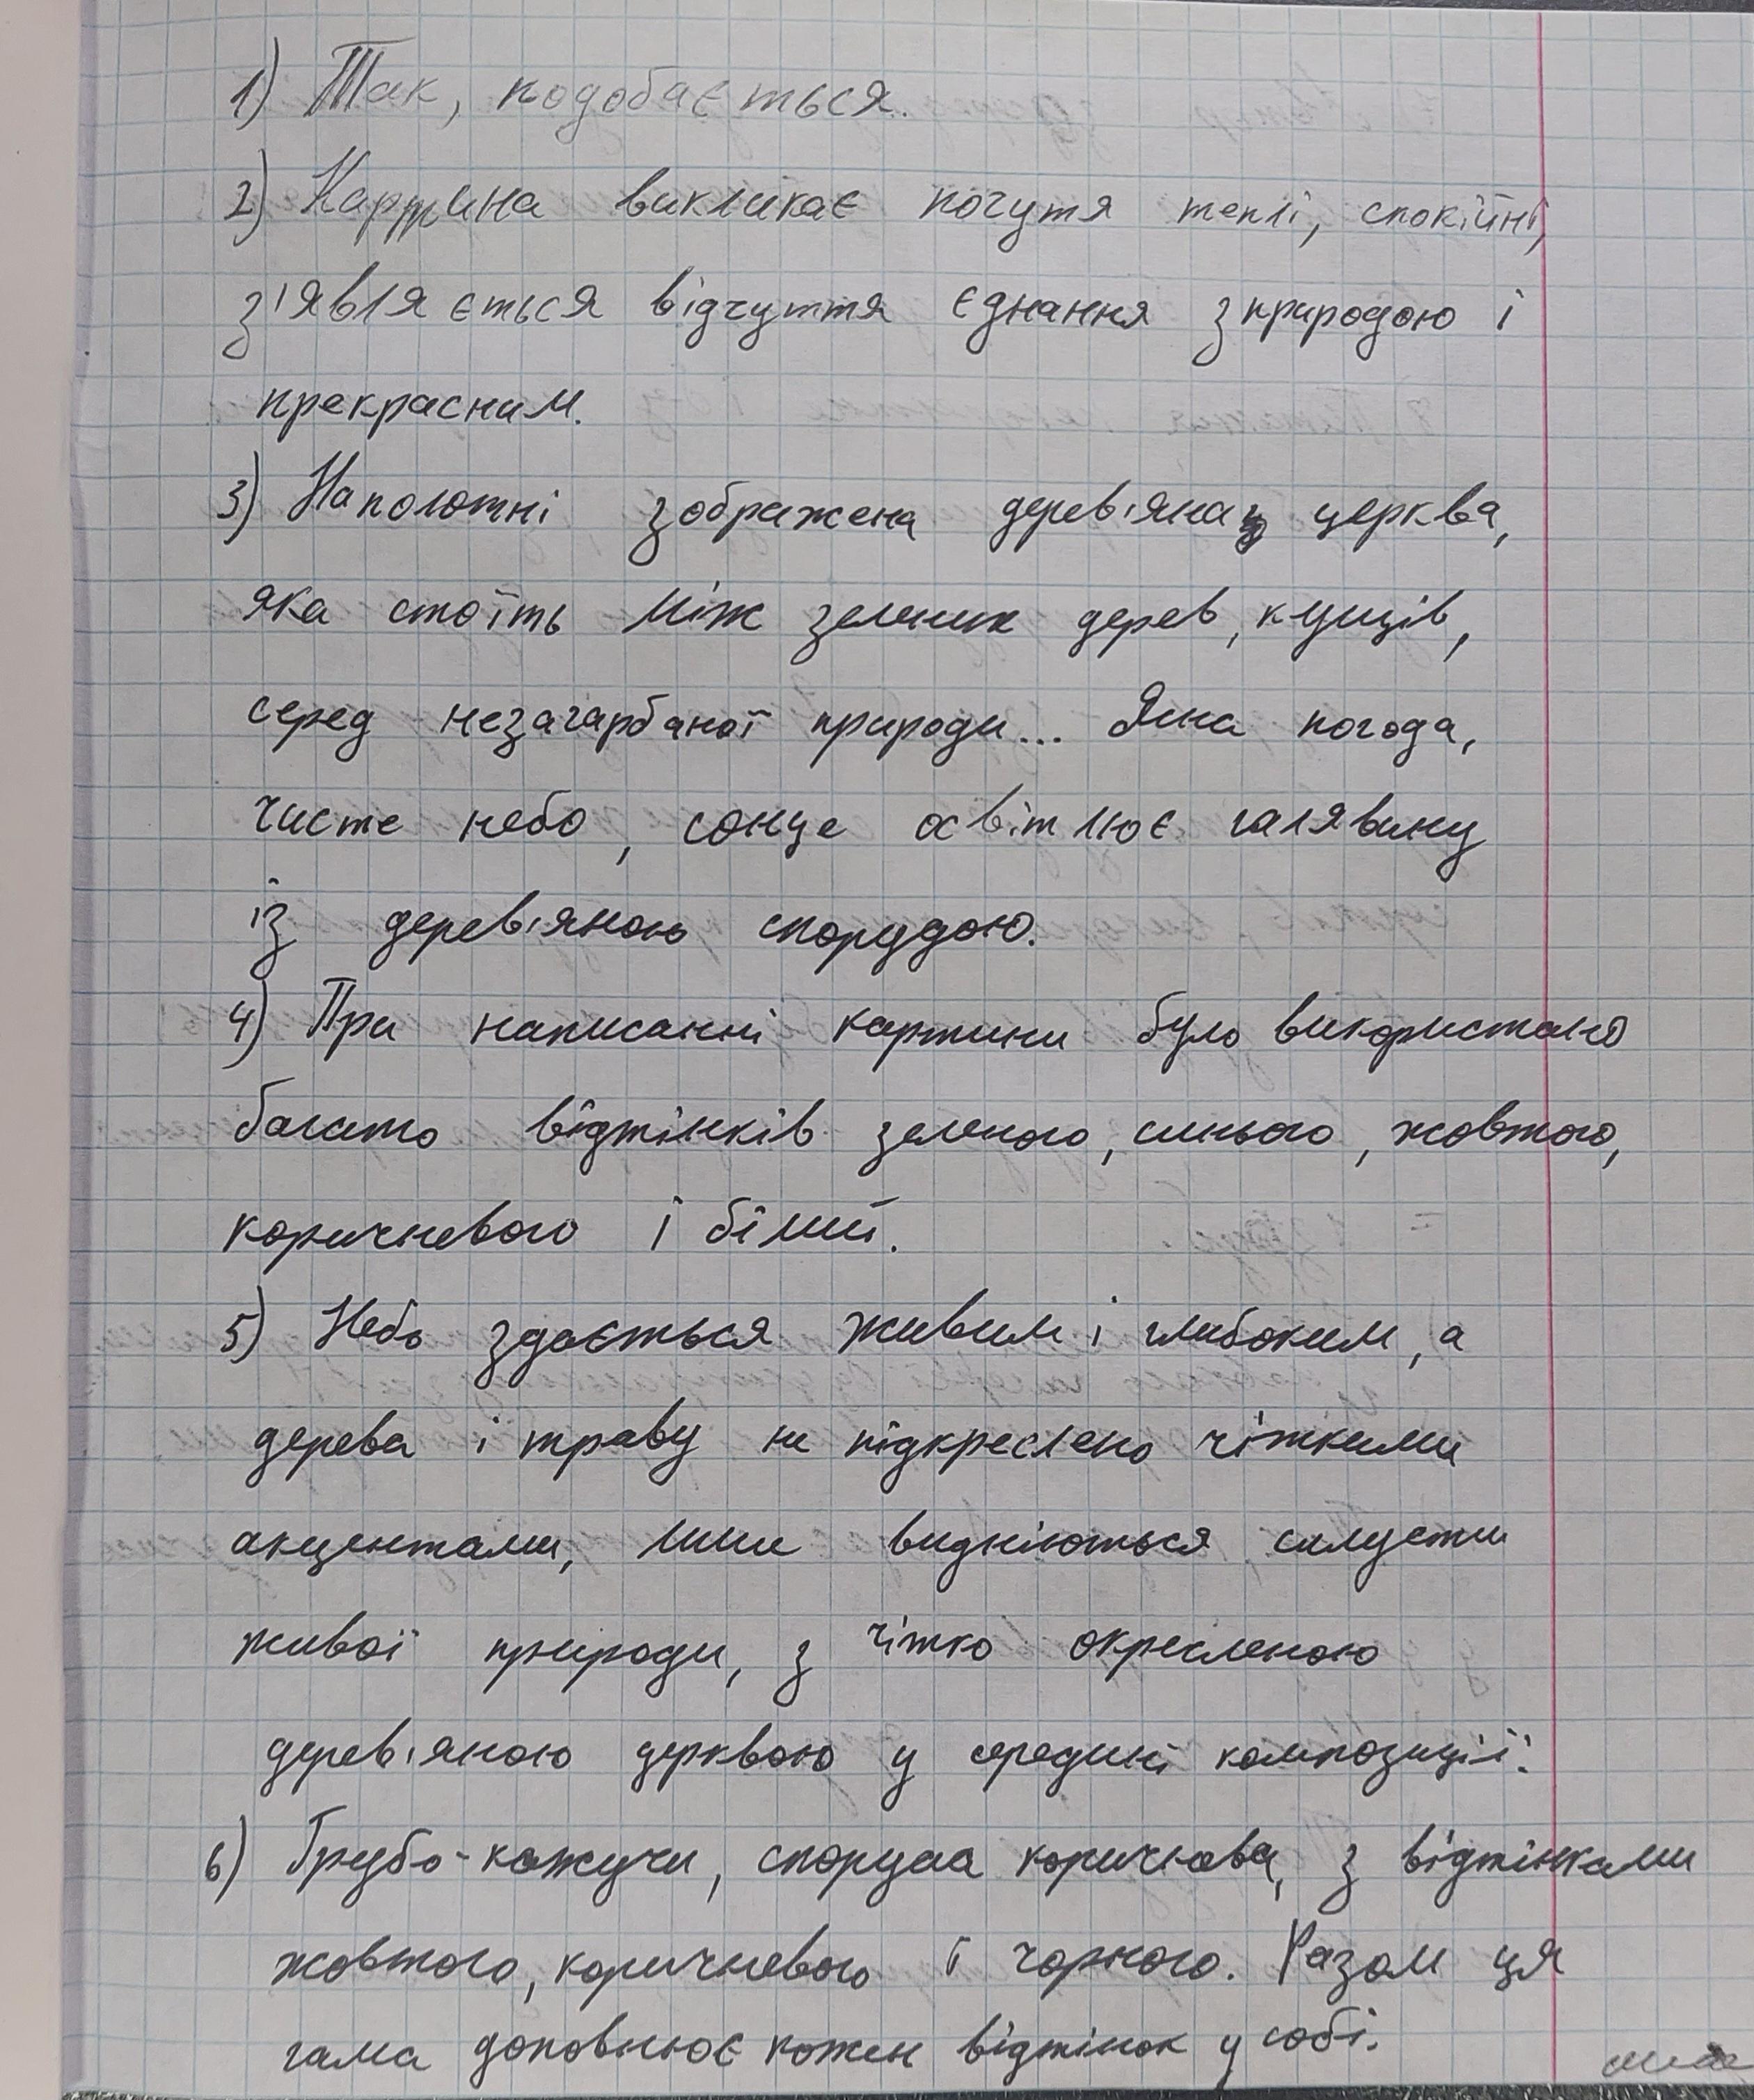 1) Так, подобається.
2) Картина викликає почуття теплі, спокійні,
з'являється відчуття єднання з природою і
прекрасним.
3) На полотні зображена дерев'яна церква,
яка стоїть між зелених дерев, кущів,
серед незагарбаної природи... Ясна погода,
чисте небо, сонце освітлює галявину
із дерев'яною спорудою.
4) При написанні картини було використано
багато відтінків зеленого, синього, жовтого,
коричневого і білий.
5) Небо здається живим і глибоким, а
дерева і траву не підкреслено чіткими
акцентами, лише видніються силуети
живої природи, з чітко окресленою
дерев'яною церквою у середині композиції.
6) Грубо-кажучи, споруда коричнева, з відтінками
жовтого, коричневого і чорного. Разом ця
гама доповнює кожен відтінок у собі.